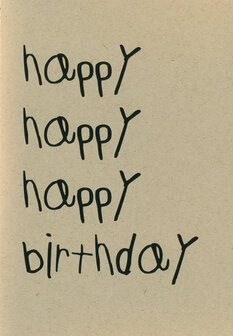 happy
happy
happy
birthday